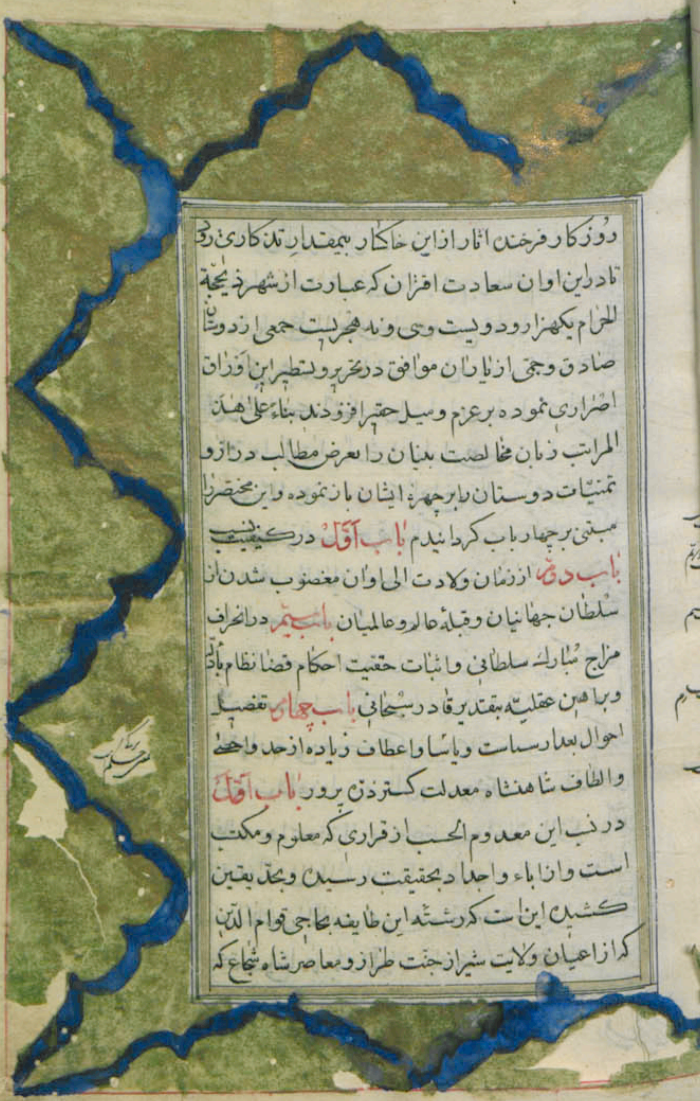 روزکار فرخنده اثار از این خاکسار بیمقدار تذکاری رود
تا در این اوان سعادت اقتران که عبارت از شهر ذیحجة
الحرام یکهزار و دویست و سی و نه هجریست جمعی از دوستان
صادق و جمعی از یاران موافق در تحریر و تسطیر این اوراق
اصراری نموده بر عزم و میل حقیر افزودند بناء علی هذه
المراتب زبان مخالصت بنیان را بعرض مطالب دراز و
تمنیّات دوستان را بر چهره ایشان باز نموده و این مختصر را
مبتنی بر چهار باب کردانیدم باب اوّل در کیفیت نسب
باب دویّم از زمان ولادت الی اوان مغضوب شدن از
سلطان جهانیان و قبلهٔ عالم و عالمیان باب سیّم در انحراف
مزاج مبارک سلطانی و اثبات حقیت احکام قضا نظام
و براهین عقلیّه بتقدیر قادر سبحانی باب چهارم تفصیل
احوال بعد از سیاست و یاسا و اعطاف زیاده از حد و احصی
و الطاف شاهنشاه معدلت کستر ذرّه پرور باب اوّل
در نسب این معدوم الحسب از قراری که معلوم و مکتب
است و از اباء و اجداد بحقیقت رسیده و بحدّ یقین
کشیده این است که رشته این طایفه بحاجی قوام الدّین
که از اعیان ولایت شیراز جنّت طراز و معاصر شاه شجاع که